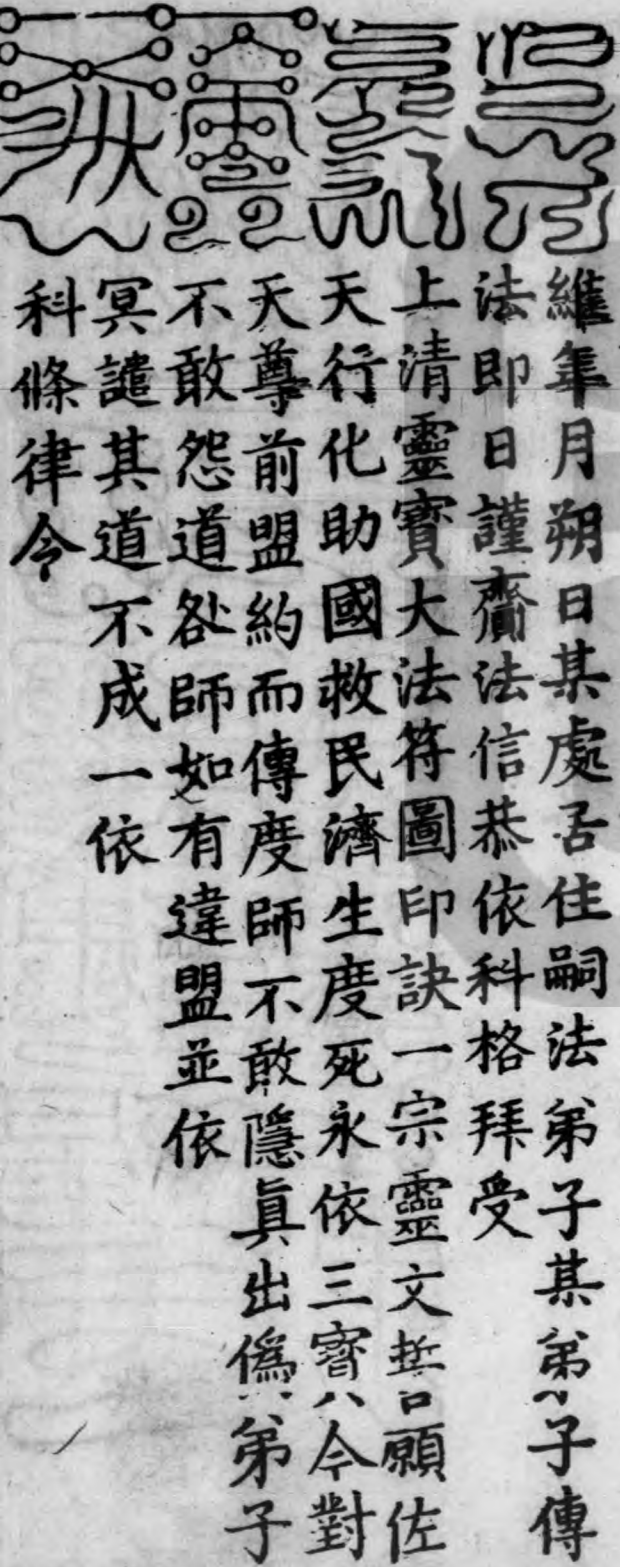 維年月朔日某處居住嗣法弟子某弟子傳
法即日謹齎法信恭依科格拜受
上清靈寶大法符圖印訣一宗靈文誓願佐
天行化助國救民濟生度死永依三寶八今對
天尊前盟約而傳度師不敢隱真出偽弟子
不敢怨道咎師如有違盟並依
冥譴其道不成一依
科條律令